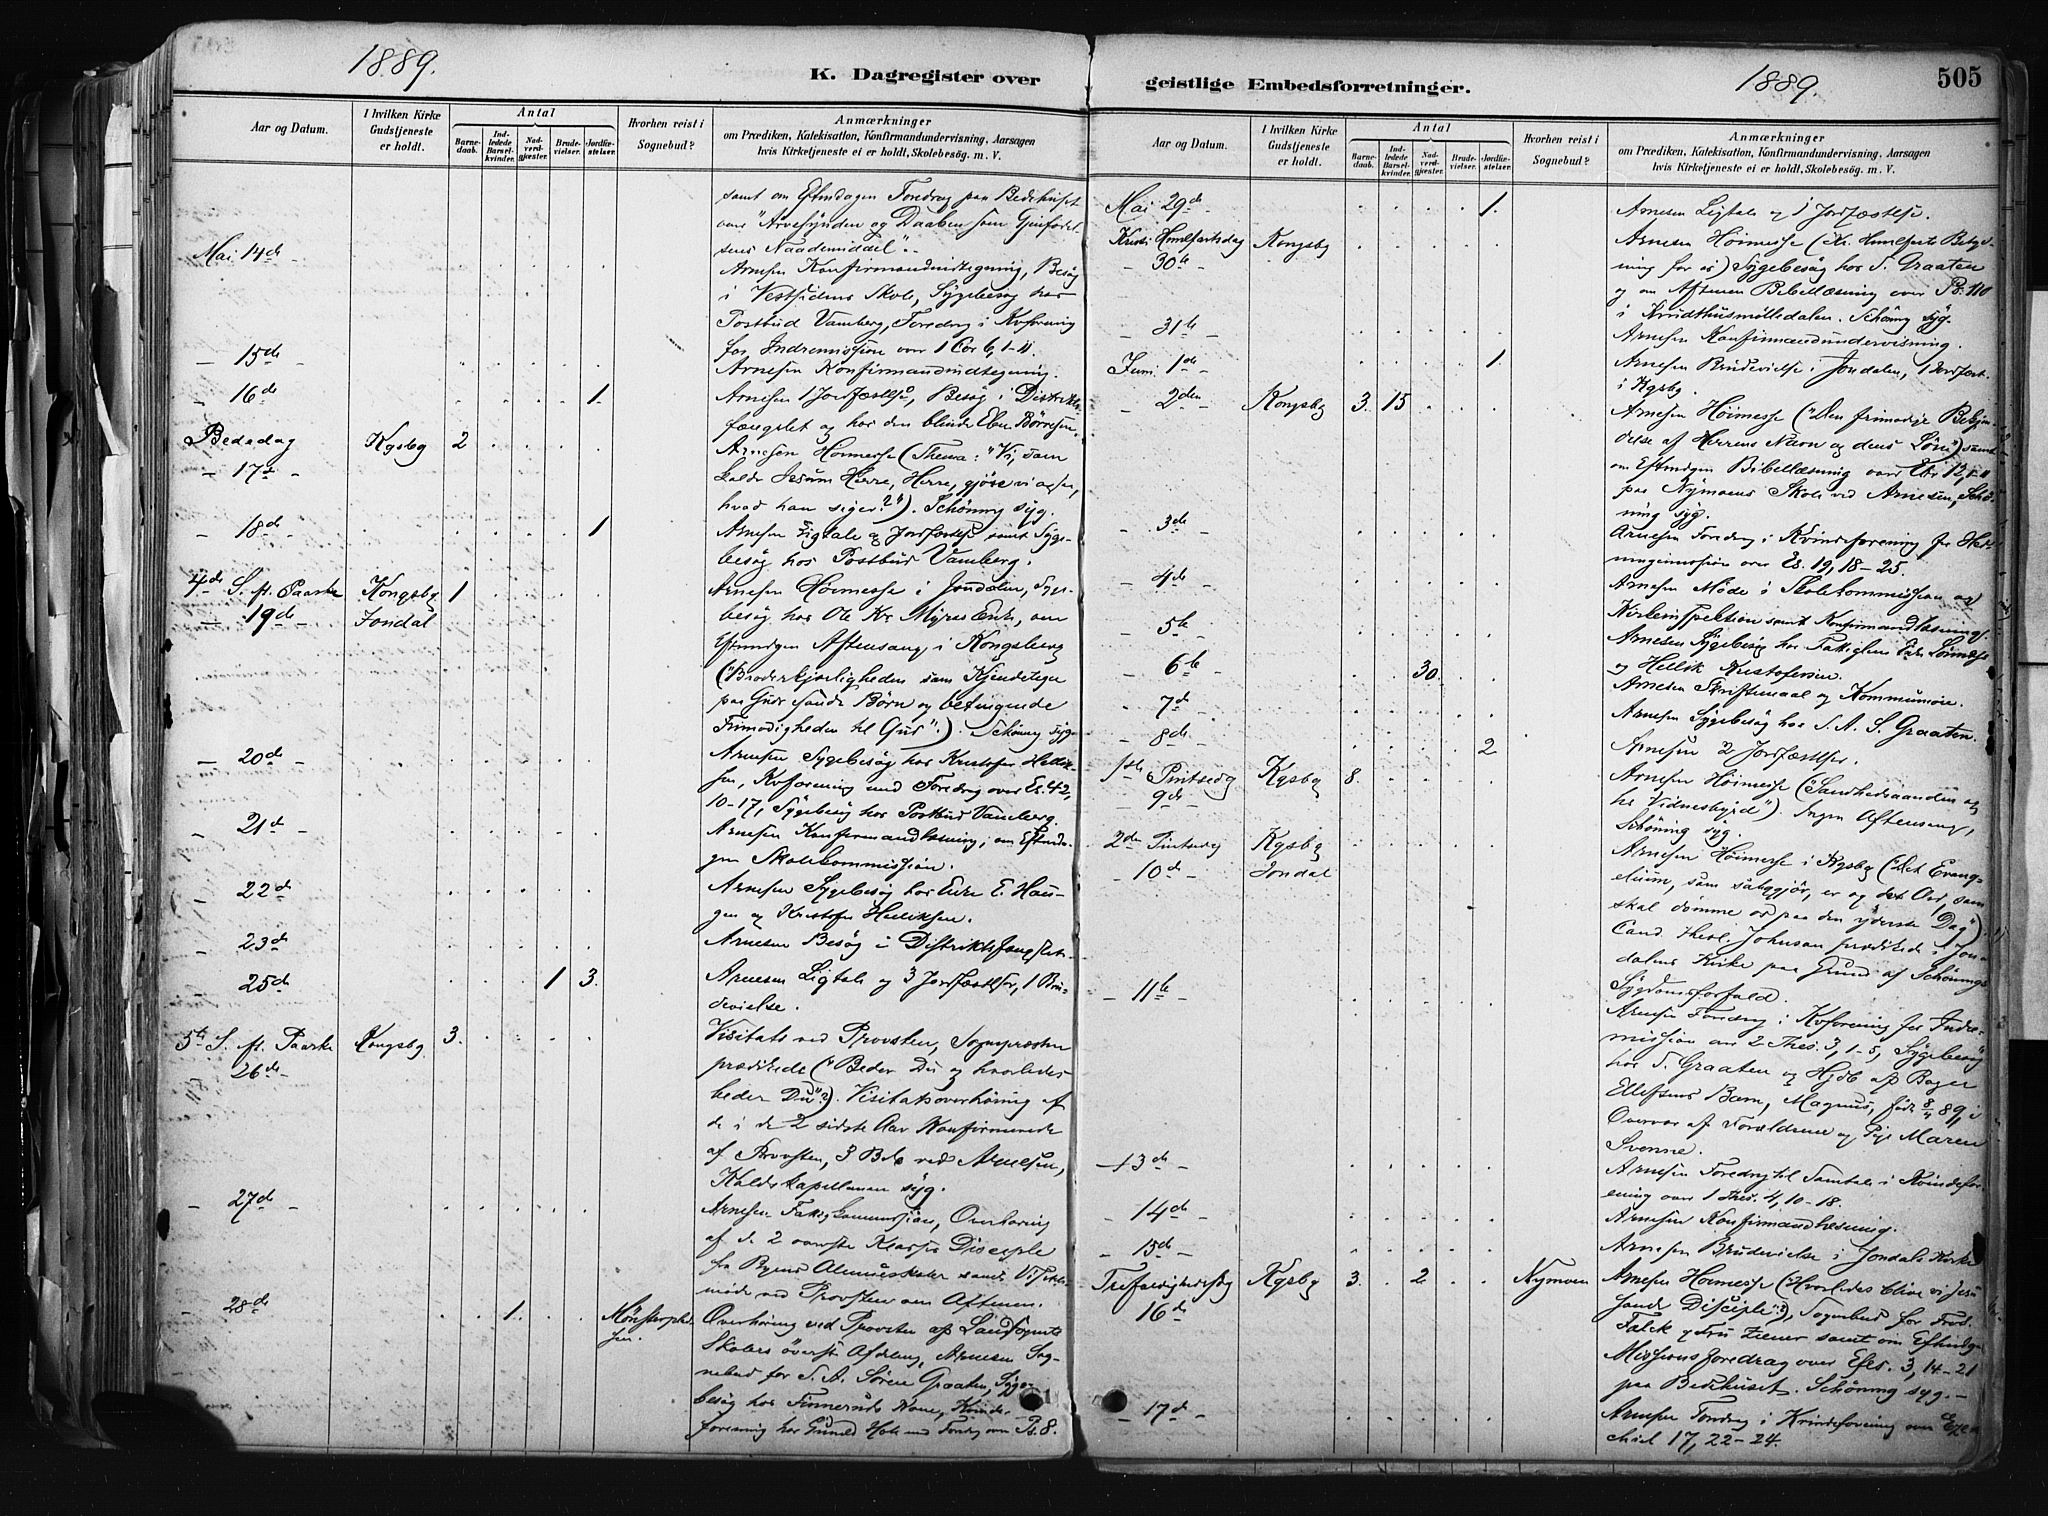 1889.
K. Dagregister over
Aar og Datum.
I hvilken Kirke Gudstjeneste er holdt.
Antal
Barnedaab.
Indledede Barselkvinder.
Nadverdgjester.
Brudevielser.
Jordfæstelser.
Hvorhen reist i Sognebud?
Anmærkninger
om Prædiken, Katekisation, Konfirmandundervisning, Aarsagen
hvis Kirketjeneste ei er holdt, Skolebesøg. m. V.
samt om Eftmdagen Foredrag paa Bedehuset
over "Arvesynden og Daaben som Gjenfødel-
sens Naademiddel".
Mai 14de
Arnesen Konfirmandudtegning, Besøg
i Vestsidens Skole, Sygebesøg hos
Postbud Vamberg, Foredrag i Kvforening
for Indremission over 1 Cor 6, 1-11.
- 15de
Arnesen Konfirmandudtegning.
- 16de 1.
Arnesen 1 Jordfæstelse, Besøg i Distrikts-
fængslet og hos den blinde Eben Børresen.
Bededag Kgsbg 2
- 17de
Arnesen Høimesse (Thema: "Vi, som
kalde Jesum Herre, Herre, gjøre vi ogsaa,
hvad han siger?"). Schøning syg.
- 18de 1
Arnesen Ligtale og Jordfæstelse samt Syge-
besøg hos Postbud Vamberg.
4de S. ft. Paaske Kongsbg 1
- 19de - Jondal
Arnesen Høimesse i Jondalen, Syge-
besøg hos Ole Kr. Myras Enke, om
Eftmdgen Aftensang i Kongsberg
("Broderkjærligheden som Kjendetegn
paa Guds sande Børn og betingende
Frimodigheden til Gud"). Schøning syg.
- 20de -
Arnesen Sygebesøg hos Kristofer Hellik-
sen, Kvforening med Foredrag over Es. 42,
10-17, Sygebesøg hos Postbud Vamberg.
- 21de
Arnesen Konfirmandlæsning; om Eftmda-
gen Skolekommission.
- 22de
Arnesen Sygebesøg hos E. Hau-
gen og Kristofer Helliksen.
- 23de
Arnesen Besøg i Distriktsfængslet.
25de 1 3.
Arnesen Ligtale og 3 Jordfæstelser, 1 Bru-
devielse.
5te S. ft. Paaske Kongsbg 3.
26de -
Visitats ved Provsten, Sognepræsten
prædikede ("Beder Du og hvorledes
beder Du"?). Visitatsoverhøring af
de i de 2 sidste Aar Konfirmerede
af Provsten, 3 Bdb ved Arnesen,
Kaldskapellanen syg.
- 27de -
Arnesen Fattigkommission, Overhøring
af de 2 øverste Klassers Disciple
fra Byens Almueskoler samt Visitats-
møde ved Provsten om Aftenen.
- 28de 1.
Overhøring ved Provsten af Landsognets
Skolers øverste Afdeling, Arnesen Sog-
nebud for S. A. Søren Graaten, Syge-
besøg hos Finneruds Kone, Kvinde-
forening hos Gunild Hole med Foredrg over Ps. 8.
geistlige Embedsforretninger.
1889.
505
Aar og Datum.
I hvilken Kirke Gudstjeneste er holdt.
Antal
Barnedaab.
Indledede Barselkvinder.
Nadverdgjester.
Brudevielser.
Jordfæstelser.
Hvorhen reist i Sognebud?
Anmærkninger
om Prædiken, Katekisation, Konfirmandundervisning, Aarsagen
hvis Kirketjeneste ei er holdt, Skolebesøg. m. V.
Mai 29de 1.
Arnesen Ligtale og 1 Jordfæstelse.
Kristi Himlfartsdag Kongsbg
- 30te -
Arnesen Høimesse (Kr. Himlfarts Betyd-
ning for os) Sygebesøg hos S. Graaten
og om Aftenen Bibellæsning over Ps. 110
i Schøning syg.
- 31te -
Arnesen Konfirmandundervisning.
Juni 1ste 1.
Arnesen Brudevielse i Jondalen, 1 Jordfæst.
i Kgsbg.
- 2den - Kongsbg 3. 15
Arnesen Høimesse ("Den frimodige Bekjen-
delse af Herrens Navn og dens Løn") samt
om Eftmdgen Bibellæsning over Ebr 12, 1-11
paa Nymoens Skole ved Arnesen, Schø-
ning syg.
- 3de -
Arnesen Foredrag i Kvindeforening for Hed-
ningemission over Es. 19, 18-25.
- 4de -
Arnesen Møde i Skolekommissionen og
Kirkeinspektion samt Konfirmandlæsning.
- 5te -
Arnesen Sygebesøg hos
og Hellik Kristofersen.
- 6te - 30.
Arnesen Skriftemaal og Kommunion.
- 7de -
Arnesen Sygebesøg hos S. A. S. Graaten.
- 8de 2
Arnesen 2 Jordfæstelser.
1ste Pintsedg Kgsbg 8.
9de -
Arnesen Høimesse ("Sandhedsaanden og
hs Vidnesbyrd"). Ingen Aftensang,
Schøning syg.
2den Pintsedg Kgsbg
- 10de - Jondal
Arnesen Høimesse i Kgsbg ("Det Evange-
lium, som saliggjør, er og det Ord, som
skal dømme os paa den yderste Dag").
Cand. theol. Johnson prædikede i Jon-
dalens Kirke paa Grund af Schønings
Sygdomsforfald.
- 11te -
Arnesen Foredrag i Kvforening for Indre-
mission over 2 Thes. 3, 1-5, Sygebesøg
hos S. Graaten og Hjdb af Bager
Ellefsens Barn, Magnus, født 8/4 89, i
Overvær af Forældrene og Pige Maren
Svenne.
- 13de -
Arnesen Foredrag til Samtale i Kvindefor-
ening over 1 Thes. 4, 10-18.
- 14de -
Arnesen Konfirmandlæsning.
- 15de -
Arnesen Brudevielse i Jondals Kirke
Trefoldighedsdg Kgsbg 3. 2 Nymoen
16de
Arnesen Høimesse ("Hvorledes blive vi Jesu
sande Disciple"?), Sognebud for Frøk.
Falck og Fru Ziener samt om Eftmdgn
Missionsforedrag over Efes. 3, 14-21
paa Bedehuset. Schøning syg. -
- 17de -
Arnesen Foredrag i Kvindeforening over Eze-
chiel 17, 22-24.